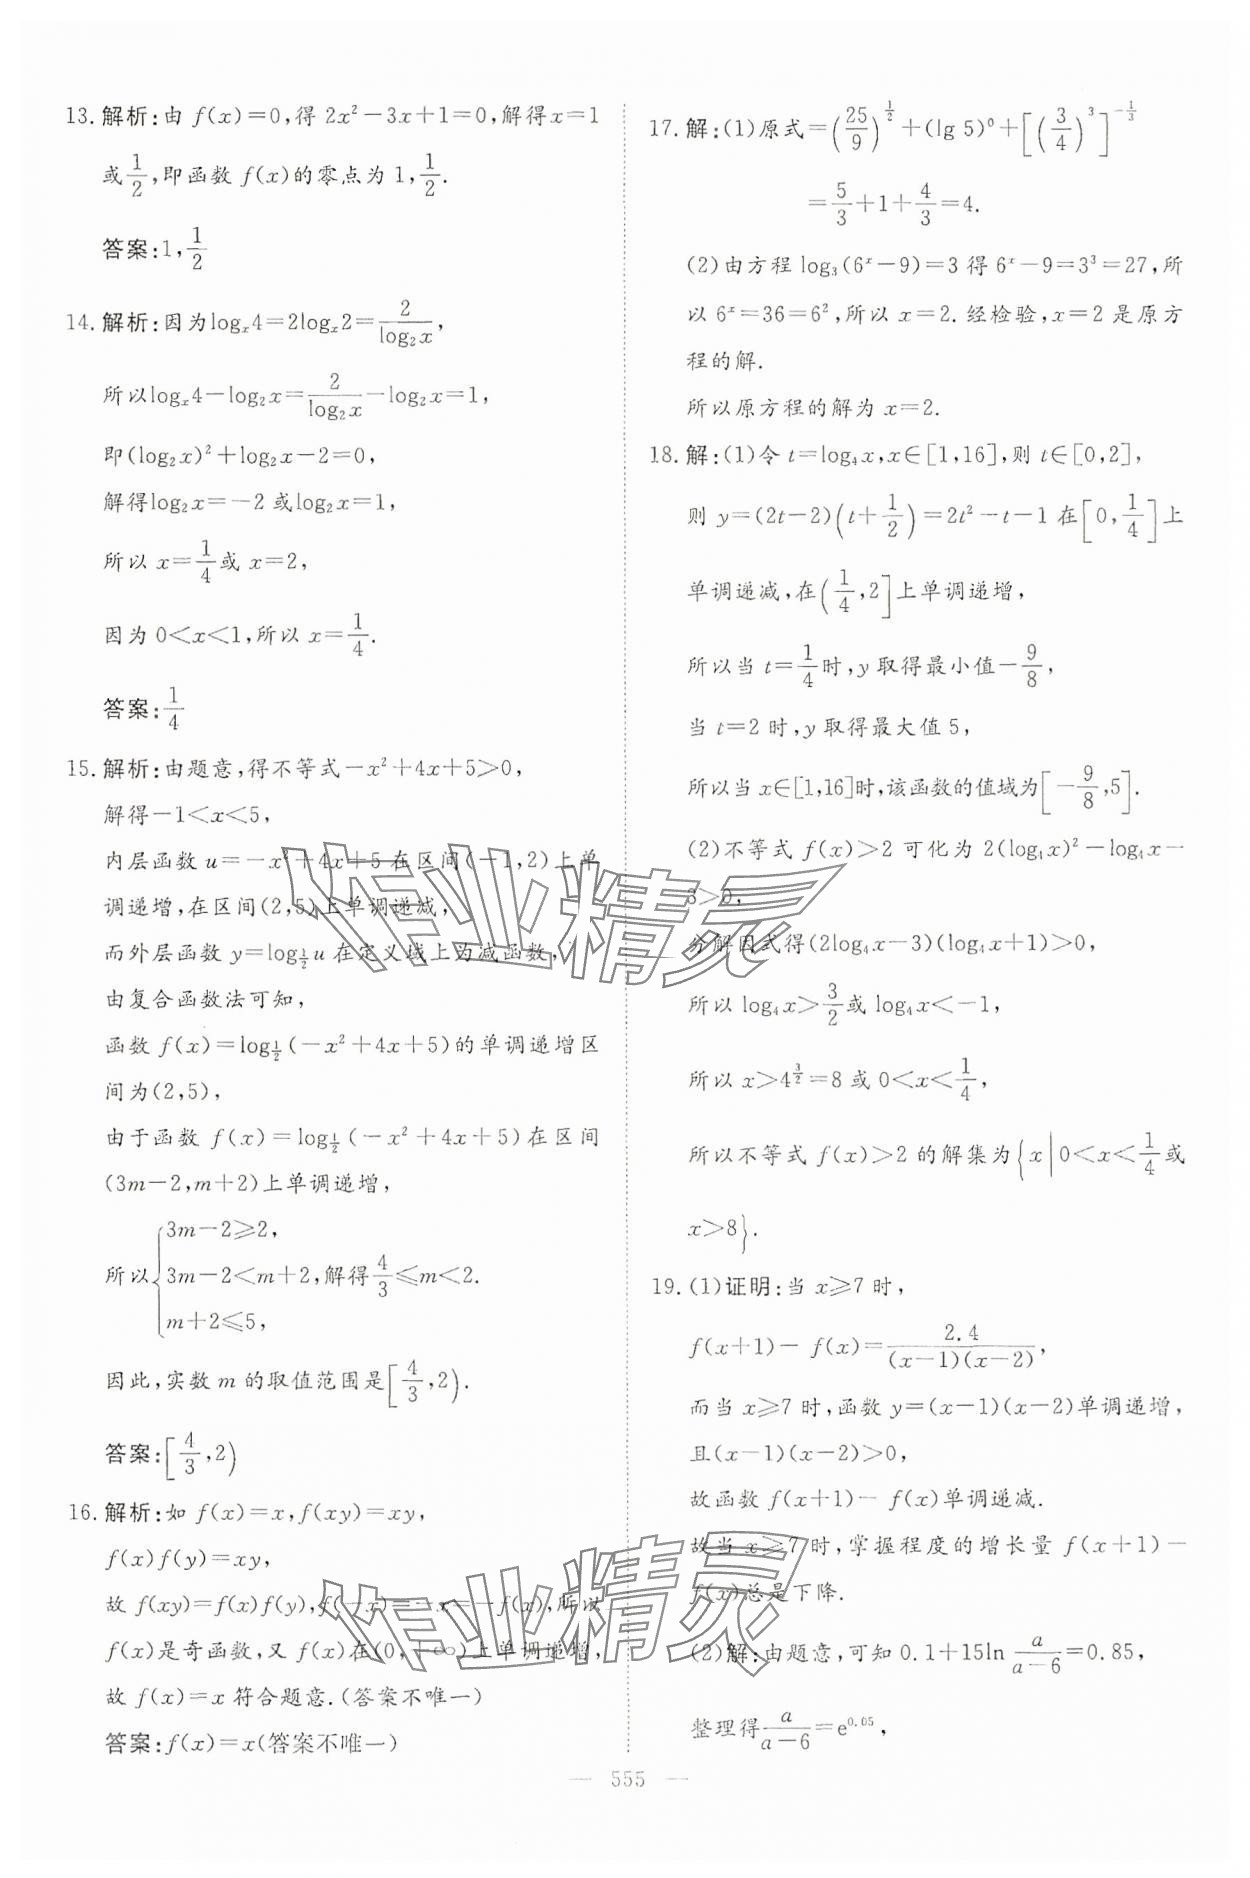 13. 解析:由 f(x)=0,得 2x²-3x+1=0,解得 x=1
或1/2,即函数 f(x)的零点为 1,1/2.
答案:1,1/2
14. 解析:因为logₓ4=2logₓ2=2/log₂x,
所以logₓ4-log₂x=2/log₂x-log₂x=1,
即(log₂x)²+log₂x-2=0,
解得log₂x=-2 或log₂x=1,
所以 x=1/4或 x=2,
因为 0<x<1,所以 x=1/4.
答案:1/4
15. 解析:由题意,得不等式-x²+4x+5>0,
解得-1<x<5,
内层函数 u=-x²+4x+5 在区间(-1,2)上单
调递增,在区间(2,5)上单调递减,
而外层函数 y=log_{1/2}u 在定义域上为减函数,
由复合函数法可知,
函数 f(x)=log_{1/2}(-x²+4x+5)的单调递增区
间为(2,5),
由于函数 f(x)=log_{1/2}(-x²+4x+5)在区间
(3m-2,m+2)上单调递增,
所以{3m-2≥2,
3m-2<m+2,解得4/3≤m<2.
m+2≤5,
因此,实数 m 的取值范围是[4/3,2).
答案:[4/3,2)
16. 解析:如 f(x)=x,f(xy)=xy,
f(x)f(y)=xy,
故 f(xy)=f(x)f(y),f(-x)=-x=-f(x),所以
f(x)是奇函数,又 f(x)在(0,+∞)上单调递增,
故 f(x)=x 符合题意.(答案不唯一)
答案:f(x)=x(答案不唯一)
17. 解:(1)原式=(25/9)^{1/2}+(lg 5)⁰+[(3/4)³]^{-1/3}
=5/3+1+4/3=4.
(2)由方程 log₃(6ˣ-9)=3 得 6ˣ-9=3³=27,所
以 6ˣ=36=6²,所以 x=2. 经检验,x=2 是原方
程的解.
所以原方程的解为 x=2.
18. 解:(1)令 t=log₄x,x∈[1,16],则 t∈[0,2],
则 y=(2t-2)(t+1/2)=2t²-t-1 在[0,1/4]上
单调递减,在(1/4,2]上单调递增,
所以当 t=1/4时,y 取得最小值-9/8,
当 t=2 时,y 取得最大值 5,
所以当 x∈[1,16]时,该函数的值域为[-9/8,5].
(2)不等式 f(x)>2 可化为 2(log₄x)²-log₄x-
3>0,
分解因式得(2log₄x-3)(log₄x+1)>0,
所以 log₄x>3/2或 log₄x<-1,
所以 x>4^{3/2}=8 或 0<x<1/4,
所以不等式 f(x)>2 的解集为{x|0<x<1/4或
x>8}.
19. (1)证明:当 x≥7 时,
f(x+1)-f(x)=2.4/(x-1)(x-2),
而当 x≥7 时,函数 y=(x-1)(x-2)单调递增,
且(x-1)(x-2)>0,
故函数 f(x+1)-f(x)单调递减.
故当 x≥7 时,掌握程度的增长量 f(x+1)-
f(x)总是下降.
(2)解:由题意,可知 0.1+15ln a/(a-6)=0.85,
整理得a/(a-6)=e^{0.05},
— 555 —
作业精灵
作业精灵